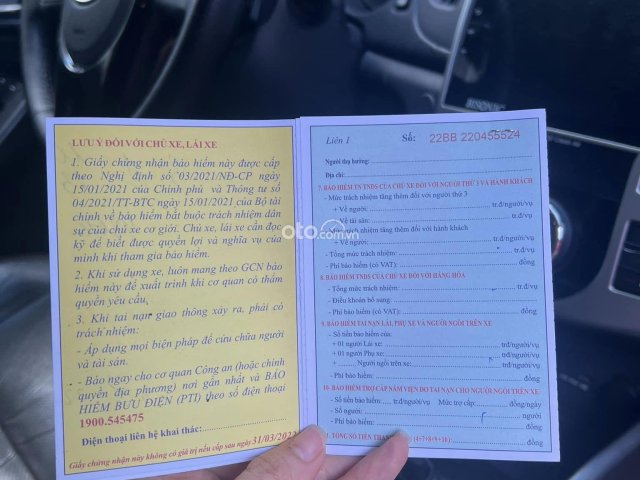 LƯU Ý ĐỐI VỚI CHỦ XE, LÁI XE
1. Giấy chứng nhận bảo hiểm này được cấp
theo Nghị định số 03/2021/NĐ-CP ngày
15/01/2021 của Chính phủ và Thông tư số
04/2021/TT-BTC ngày 15/01/2021 của Bộ tài
chính về bảo hiểm bắt buộc trách nhiệm dân
sự của chủ xe cơ giới. Chủ xe, lái xe cần đọc
kỹ để biết được quyền lợi và nghĩa vụ của
mình khi tham gia bảo hiểm.
2. Khi sử dụng xe, luôn mang theo GCN bảo
hiểm này để xuất trình khi cơ quan có thẩm
quyền yêu cầu.
3. Khi tai nạn giao thông xảy ra, phải có
trách nhiệm:
- Áp dụng mọi biện pháp để cứu chữa người
và tài sản.
- Báo ngay cho cơ quan Công an (hoặc chính
quyền địa phương) nơi gần nhất và BẢO
HIỂM BƯU ĐIỆN (PTI) theo số điện thoại
1900.545475
Điện thoại liên hệ khai thác:
Giấy chứng nhận này không có giá trị nếu cấp sau ngày 31/03/2022
Liên 1 Số: 22BB 220455524
Người thụ hưởng:
Địa chỉ:
7. BẢO HIỂM TN TNDS CỦA CHỦ XE ĐỐI VỚI NGƯỜI THỨ 3 VÀ HÀNH KHÁCH
- Mức trách nhiệm tăng thêm đối với người thứ 3
+ Về người: tr.đ/người/vụ
+ Về tài sản: tr.đ/vụ
- Mức trách nhiệm tăng thêm đối với hành khách
+ Về người: tr.đ/người/vụ
- Tổng mức trách nhiệm: tr.đ/vụ
- Phí bảo hiểm (có VAT): đồng
8. BẢO HIỂM TNDS CỦA CHỦ XE ĐỐI VỚI HÀNG HÓA
- Tổng mức trách nhiệm: tr.đ/vụ
- Điều khoản bổ sung:
- Phí bảo hiểm (có VAT): đồng
9. BẢO HIỂM TAI NẠN LÁI, PHỤ XE VÀ NGƯỜI NGỒI TRÊN XE
- Số tiền bảo hiểm của:
+ 01 người Lái xe: trđ/người/vụ
+ 01 người Phụ xe: trđ/người/vụ
+ Người ngồi trên xe: trđ/người/vụ
- Phí bảo hiểm: đồng
10. BẢO HIỂM TRỢ CẤP NẰM VIỆN DO TAI NẠN CHO NGƯỜI NGỒI TRÊN XE
- Số tiền bảo hiểm: tr.đ/người/vụ Mức trợ cấp: đồng/ngày
- Số người: người
- Phí bảo hiểm: đồng
TỔNG SỐ TIỀN (4+7+8+9+10): đồng
oto.com.vn